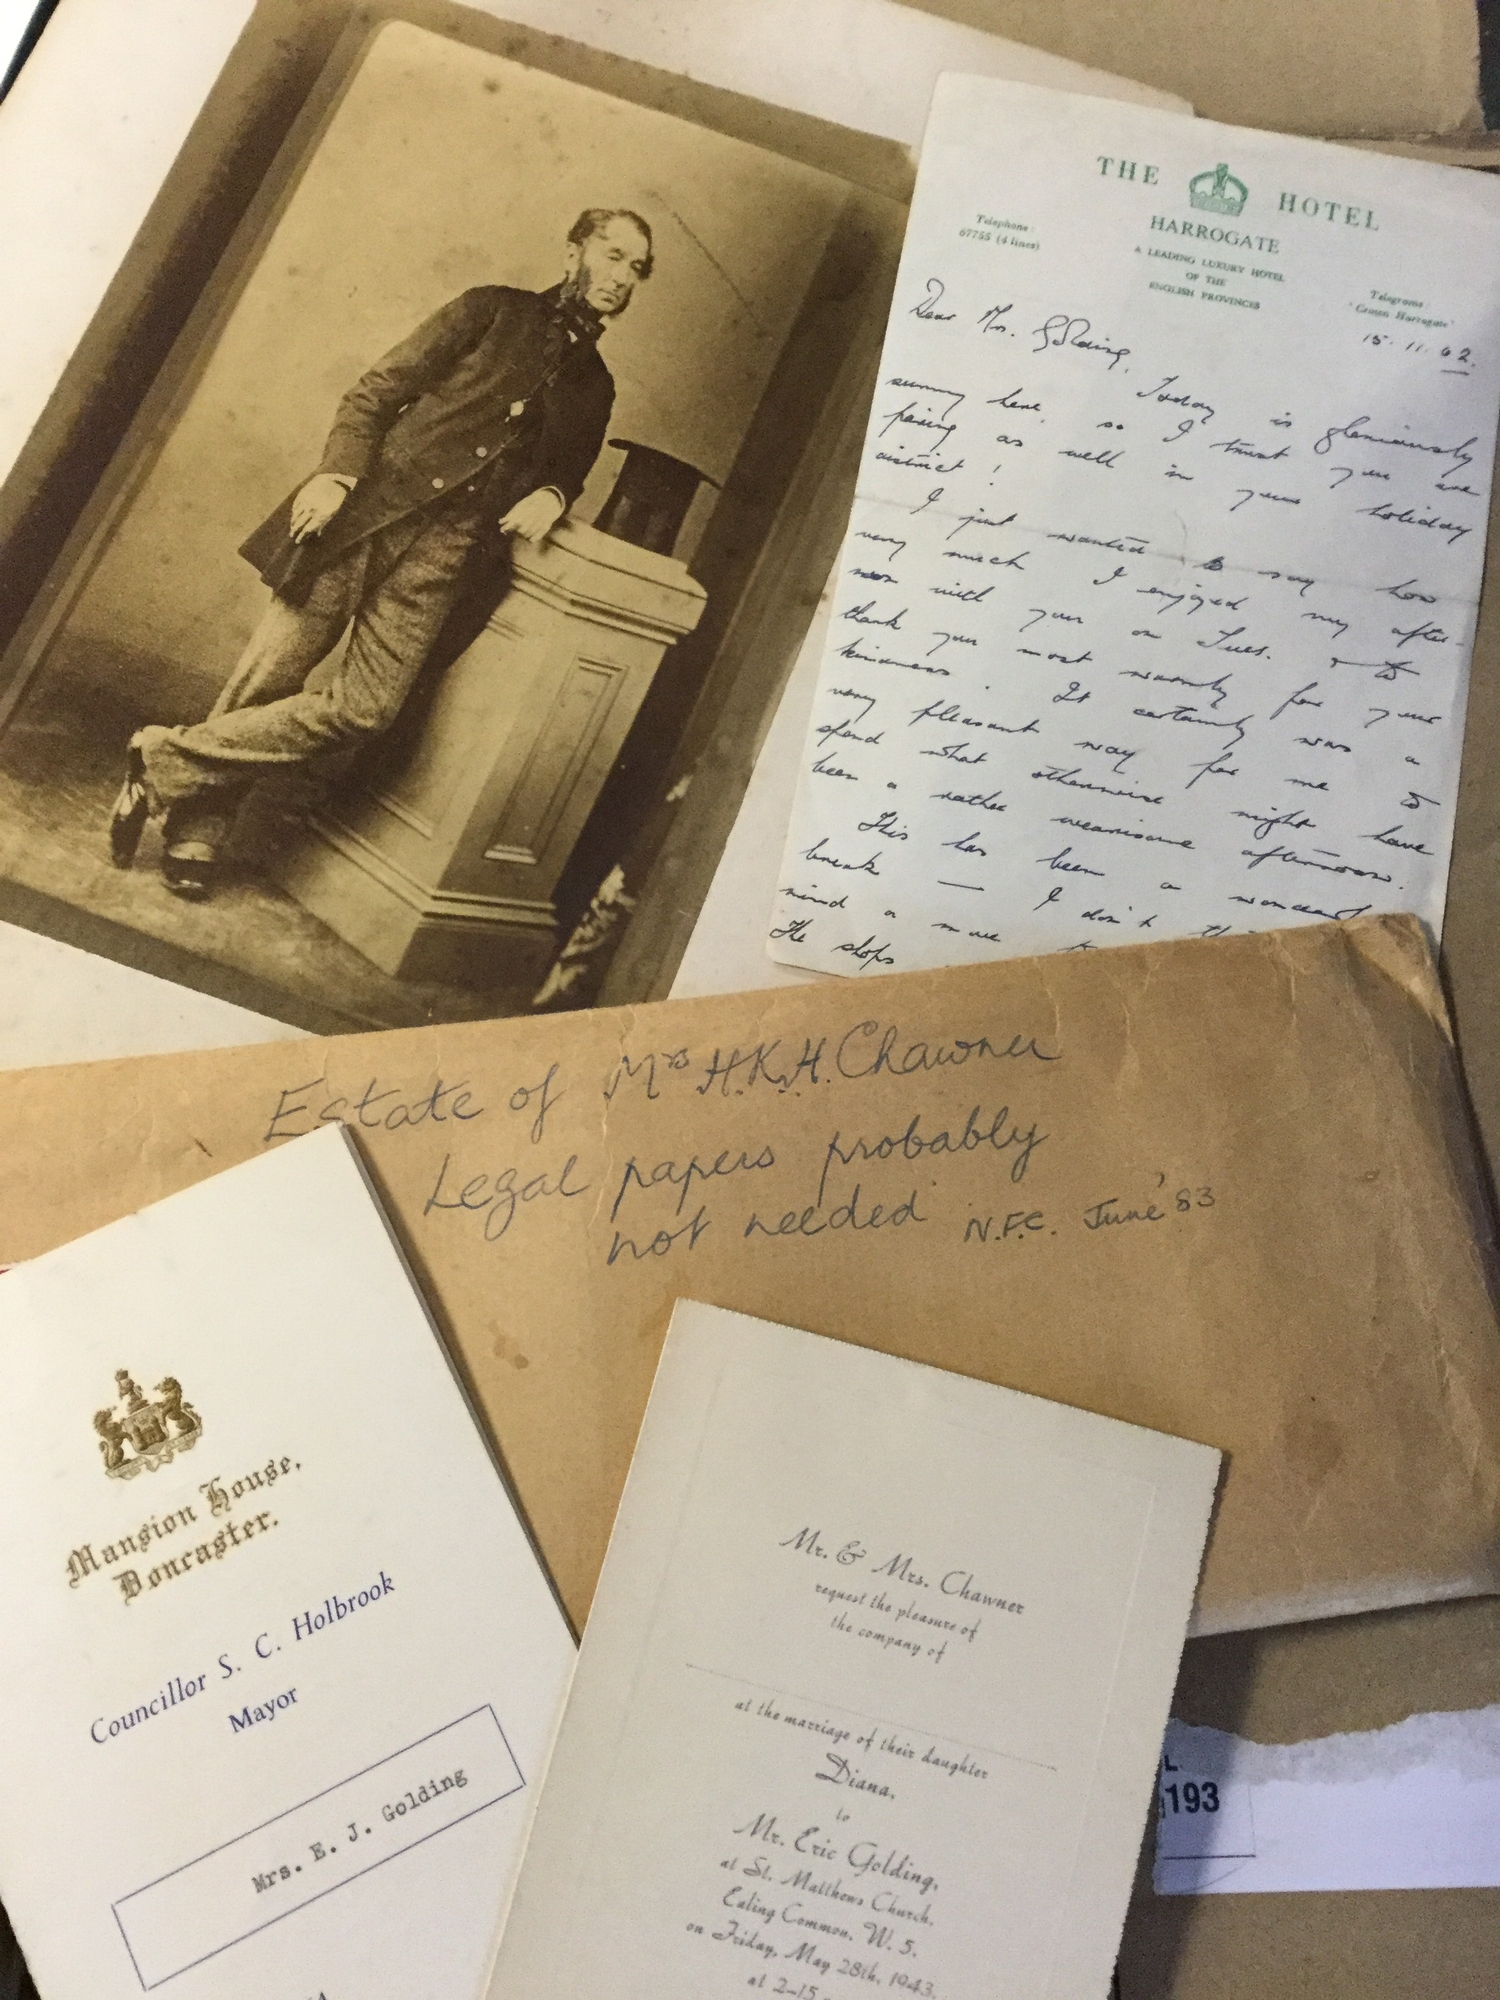 THE HOTEL
HARROGATE
A LEADING LUXURY HOTEL
OF THE
ENGLISH PROVINCES
Telephone:
67755 (4 lines)
Telegrams:
"Crown Harrogate"
15. 11. 62.
Dear Mrs. Golding,
Today is gloriously
sunny here, so I trust you are
faring as well in your holiday
district!
I just wanted to say how
very much I enjoyed my after-
noon with you on Tues. & to
thank you most warmly for your
kindness. It certainly was a
very pleasant way for me to
spend what otherwise might have
been a rather wearisome afternoon.
This has been a
break — I don't
mind a more
The shops
Estate of Mrs H.K.H. Chawner
Legal papers probably
not needed N.F.C. June '83
Mansion House,
Doncaster.
Councillor S. C. Holbrook
Mayor
Mrs. E. J. Golding
Mr. & Mrs. Chawner
request the pleasure of
the company of
at the marriage of their daughter
Diana,
to
Mr. Eric Golding,
at St. Matthews Church,
Ealing Common, W. 5.
on Friday, May 28th, 1943,
at 2-15
193